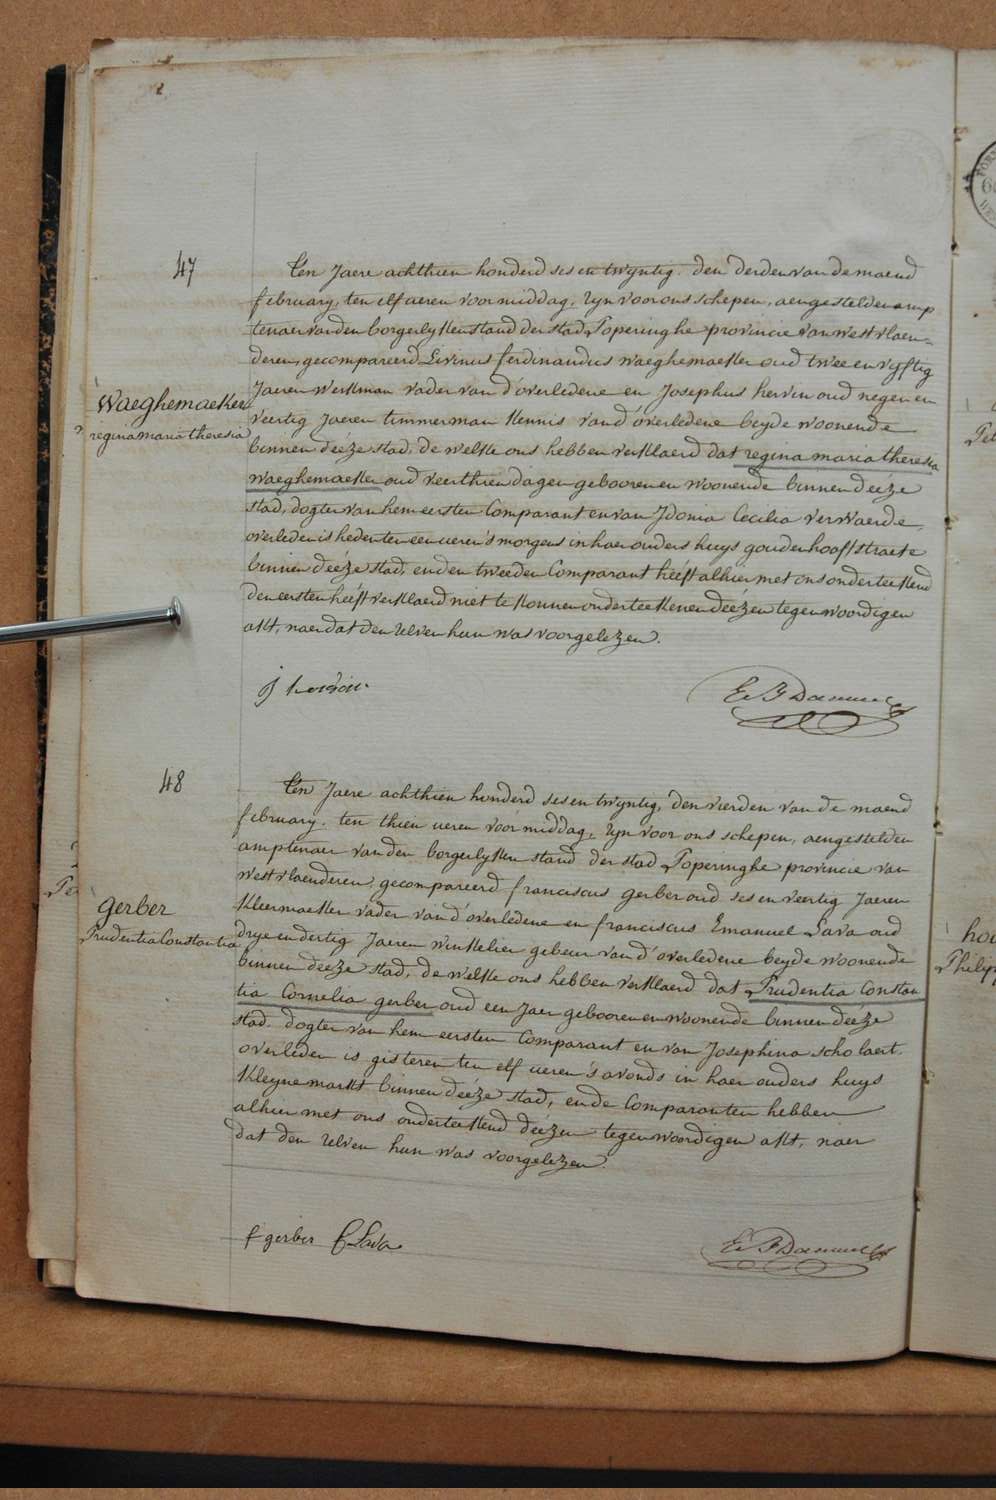 47
Ten Jaere achthien honderd ses en twyntig. den derden van de maend
february, ten elf ueren voormiddag, zyn voor ons schepen, aengestelden amp
tenaer van den borgerlyken stand der stad Poperinghe provincie van westvlaen=
deren, gecompareerd Livinus ferdinandus waeghemaeker oud twee en vyftig
Jaeren werkman vader van d'overledene en Josephus hervin oud negen en
veertig Jaeren timmerman kennis van d'overledene beyde woonende
binnen deéze stad, de welke ons hebben verklaerd dat regina maria theresia
waeghemaeker oud veerthien dagen gebooren en woonende binnen deéze
stad, dogter van hem eersten Comparant en van Idonia Cecilia verwaerde,
overleden is heden ten een ueren s'morgens in haer ouders huys goudenhooft straete
binnen deéze stad, en den tweeden Comparant heeft alhier met ons onderteekend
den eersten heéft verklaerd niet te konnen onderteekenen deézen tegenwoordigen
akt, naer dat den zelven hun was voorgelezen.
Waeghemaeker
regina maria theresia
48
Ten Jaere achthien honderd ses en twyntig, den vierden van de maend
february. ten thien ueren voormiddag, zyn voor ons schepen, aengestelden
amptenaer van den borgerlyken stand der stad Poperinghe provincie van
westvlaenderen, gecompareerd franciscus gerber oud ses en veertig Jaeren
kleermaeker vader van d'overledene en franciscus Emanuel Lava oud
drye en dertig Jaeren winkelier gebeur van d'overledene beyde woonende
binnen deéze stad, de welke ons hebben verklaerd dat Prudentia Constan
tia Cornelia gerber oud een Jaer gebooren en woonende binnen deéze
stad. dogter van hem eersten Comparant en van Josephina scholaert.
overleden is gisteren ten elf ueren s'avonds in haer ouders huys
kleyne markt binnen deéze stad, en de Comparanten hebben
alhier met ons onderteekend deézen tegenwoordigen akt, naer
dat den zelven hun was voorgelezen.
gerber
Prudentia Constantia
f gerber f Lava